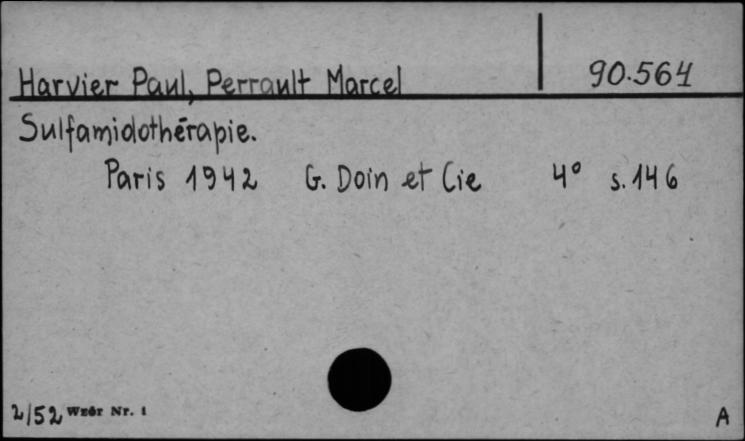 90.564
Harvier Paul, Perrault Marcel
Sulfamidothérapie.
Paris 1942 G. Doin et Cie 4° s. 146
2/52 Wzór Nr. 1
A